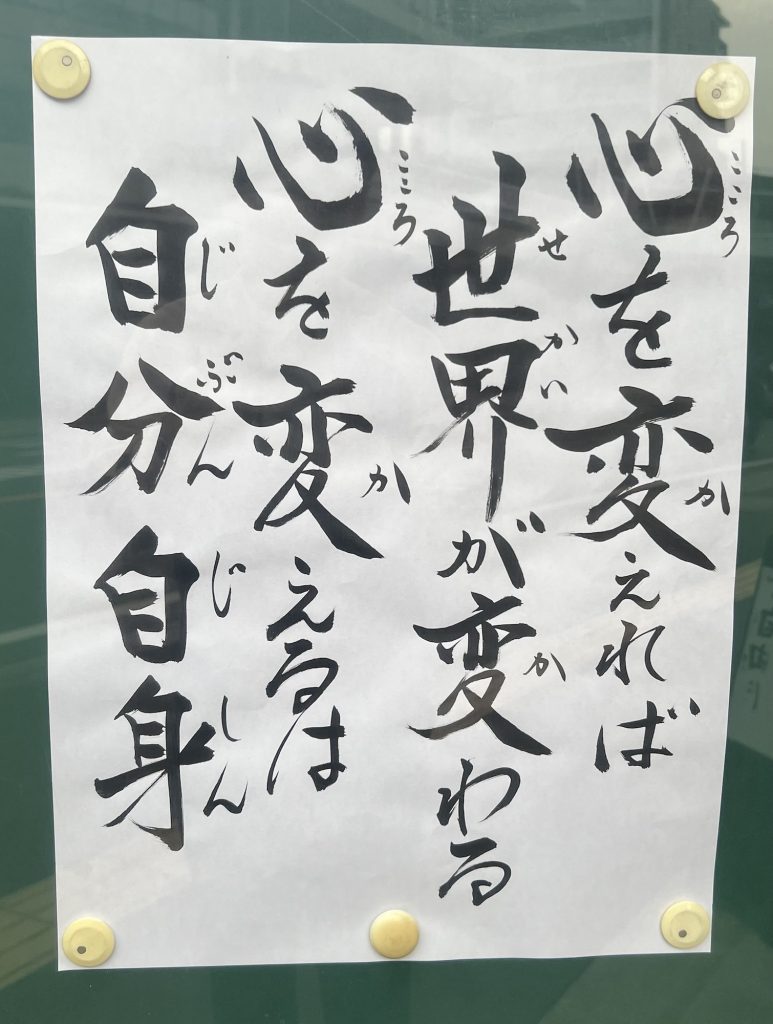 心を変えれば
世界が変わる
心を変えるは
自分自身
こころ
か
せかい
か
こころ
か
じぶんじしん